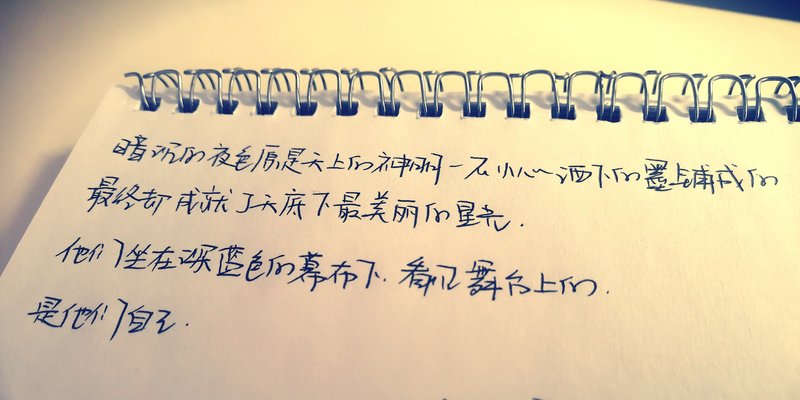 暗沉的夜色原是天上的神明一不小心洒下的墨铺成的
最终却成就了天底下最美丽的星光.
他们坐在深蓝色的幕布下.看似舞台上的.
是他们自己.